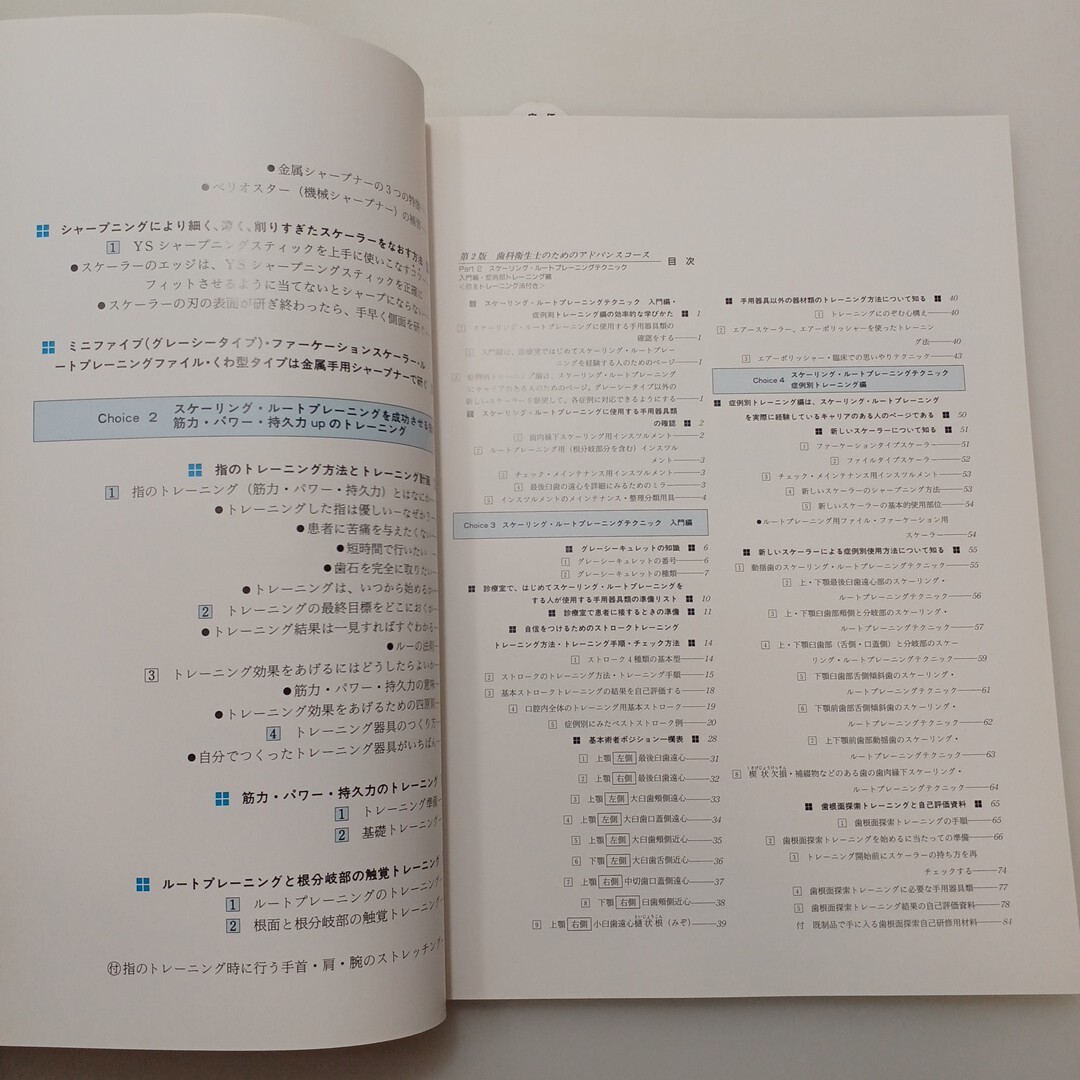 ●金属シャープナーの3つの特徴
●ペリオスター(機械シャープナー)の構造
シャープニングにより細く、薄く、削りすぎたスケーラーをなおす方法
1 YSシャープニングスティックを上手に使いこなすコツ
●スケーラーのエッジは、YSシャープニングスティックを正確に
フィットさせるように当てないとシャープにならない
●スケーラーの刃の表面が研ぎ終わったら、手早く側面を研
ミニファイブ(グレーシータイプ)・ファーケーションスケーラー・ル
ートプレーニングファイル・くわ型タイプは金属手用シャープナーで研ぐ
Choice 2 スケーリング・ルートプレーニングを成功させる
筋力・パワー・持久力upのトレーニング
指のトレーニング方法とトレーニング計画
1 指のトレーニング(筋力・パワー・持久力)とはなにか
●トレーニングした指は優しい—なぜか?
●患者に苦痛を与えたくない
●短時間で行いたい
●歯石を完全に取りたい
●トレーニングは、いつから始めるか
2 トレーニングの最終目標をどこにおくか
●トレーニング結果は一見すればすぐわかる
●ルーの法則
3 トレーニング効果をあげるにはどうしたらよいか
●筋力・パワー・持久力の意味
●トレーニング効果をあげるための四原則
4 トレーニング器具のつくり方
●自分でつくったトレーニング器具がいちばん
筋力・パワー・持久力のトレーニング
1 トレーニング準備
2 基礎トレーニング
ルートプレーニングと根分岐部の触覚トレーニング
1 ルートプレーニングのトレーニング
2 根面と根分岐部の触覚トレーニング
付 指のトレーニング時に行う手首・肩・腕のストレッチング
第2版 歯科衛生士のためのアドバンスコース
Part 2 スケーリング・ルートプレーニングテクニック
入門編・症例別トレーニング編
目 次
スケーリング・ルートプレーニングテクニック 入門編・
症例別トレーニング編の効率的な学びかた 1
1 スケーリング・ルートプレーニングに使用する手用器具類の
確認をする—1
2 入門編は、診療室ではじめてスケーリング・ルートプレー
ニングを経験する人のためのページ—1
3 症例別トレーニング編は、スケーリング・ルートプレーニング
にキャリアのある人のためのページ。グレーシータイプ以外の
新しいスケーラーを駆使して、各症例に対応できるようにする—1
スケーリング・ルートプレーニングに使用する手用器具類
の確認 2
1 歯肉縁下スケーリング用インスツルメント—2
2 ルートプレーニング用(根分岐部分を含む)インスツル
メント—3
3 チェック・メインテナンス用インスツルメント—3
4 最後臼歯の遠心を詳細にみるためのミラー—3
5 インスツルメントのメインテナンス・整理分類用具—4
Choice 3 スケーリング・ルートプレーニングテクニック 入門編
グレーシーキュレットの知識 6
1 グレーシーキュレットの番号—6
2 グレーシーキュレットの種類—7
診療室で、はじめてスケーリング・ルートプレーニングを
する人が使用する手用器具類の準備リスト 10
診療室で患者に接するときの準備 11
自信をつけるためのストロークトレーニング
トレーニング方法・トレーニング手順・チェック方法 14
1 ストローク4種類の基本型—14
2 ストロークのトレーニング方法・トレーニング手順—15
3 基本ストロークトレーニングの結果を自己評価する—18
4 口腔内全体のトレーニング用基本ストローク—19
5 症例別にみたベストストローク例—20
基本術者ポジション一欄表 28
1 上顎 左側 最後臼歯遠心—31
2 上顎 右側 最後臼歯遠心—32
3 上顎 左側 大臼歯頬側遠心—33
4 上顎 左側 大臼歯口蓋側遠心—34
5 上顎 左側 大臼歯頬側近心—35
6 下顎 左側 大臼歯舌側近心—36
7 上顎 右側 中切歯口蓋側遠心—37
8 下顎 右側 臼歯頬側近心—38
9 上顎 右側 小臼歯遠心樋状根(みぞ)—39
手用器具以外の器材類のトレーニング方法について知る 40
1 トレーニングにのぞむ心構え—40
2 エアースケーラー、エアーポリッシャーを使ったトレーニン
グ法—40
3 エアーポリッシャー・臨床での思いやりテクニック—43
Choice 4 スケーリング・ルートプレーニングテクニック
症例別トレーニング編
症例別トレーニング編は、スケーリング・ルートプレーニング
を実際に経験しているキャリアのある人のページである 50
新しいスケーラーについて知る 51
1 ファーケーションタイプスケーラー—51
2 ファイルタイプスケーラー—52
3 チェック・メインテナンス用インスツルメント—53
4 新しいスケーラーのシャープニング方法—53
5 新しいスケーラーの基本的使用部位—54
●ルートプレーニング用ファイル・ファーケーション用
スケーラー—54
新しいスケーラーによる症例別使用方法について知る 55
1 動揺歯のスケーリング・ルートプレーニングテクニック—55
2 上・下顎最後臼歯遠心部のスケーリング・
ルートプレーニングテクニック—56
3 上・下顎臼歯部頬側と分岐部のスケーリング・
ルートプレーニングテクニック—57
4 上・下顎臼歯部(舌側・口蓋側)と分岐部のスケー
リング・ルートプレーニングテクニック—59
5 下顎臼歯部舌側傾斜歯のスケーリング・
ルートプレーニングテクニック—61
6 下顎前歯部舌側傾斜歯のスケーリング・
ルートプレーニングテクニック—62
上下顎前歯部動揺歯のスケーリング・
ルートプレーニングテクニック—63
8 楔状欠損・補綴物などのある歯の歯肉縁下スケーリング・
ルートプレーニングテクニック—64
歯根面探索トレーニングと自己評価資料 65
1 歯根面探索トレーニングの手順—65
2 歯根面探索トレーニングを始めるに当たっての準備—66
3 トレーニング開始前にスケーラーの持ち方を再
チェックする—74
4 歯根面探索トレーニングに必要な手用器具類—77
5 歯根面探索トレーニング結果の自己評価資料—78
付 既製品で手に入る歯根面探索自己研修用材料—84